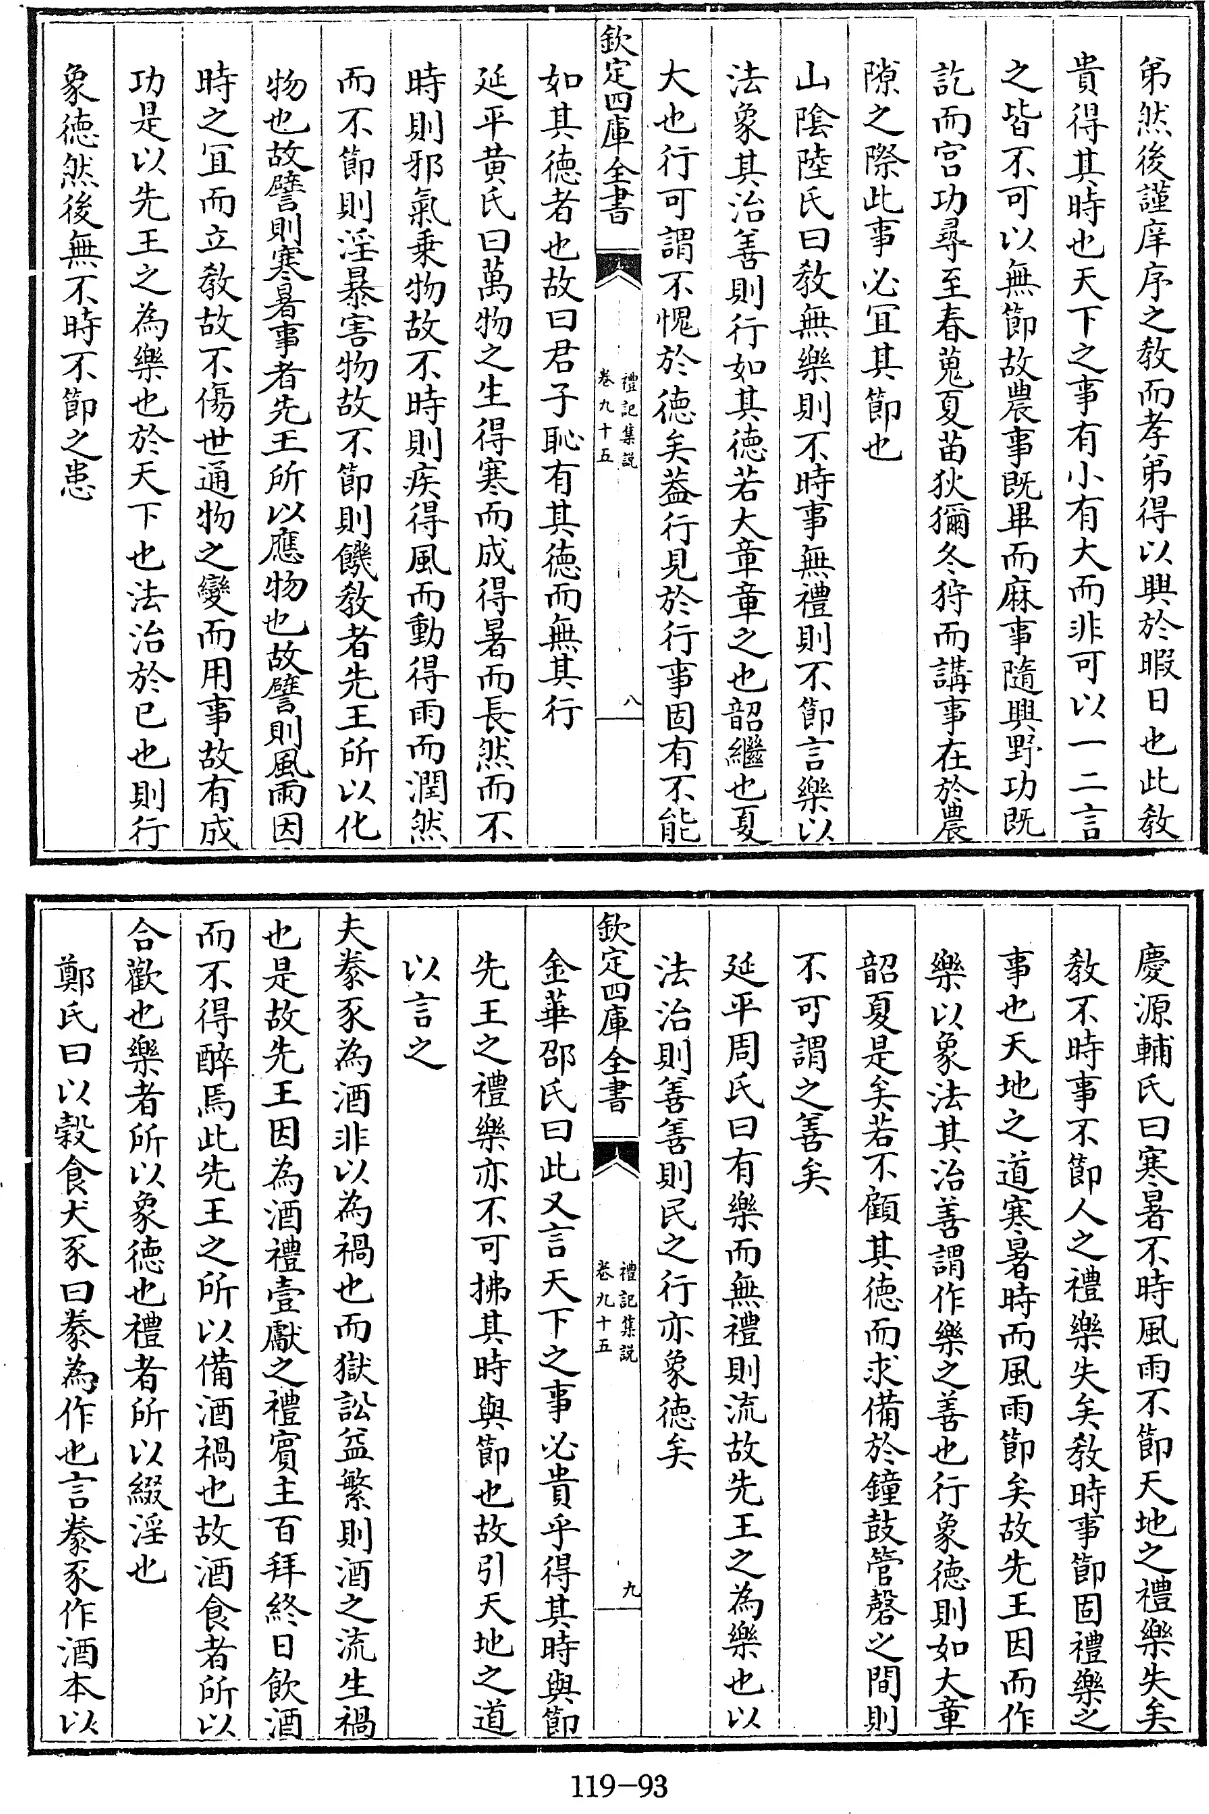 弟然後謹庠序之敎而孝弟得以興於暇日也此敎
貴得其時也天下之事有小有大而非可以一二言
之皆不可以無節故農事既畢而麻事隨興野功既
訖而宫功尋至春蒐夏苗狄獮冬狩而講事在於農
隙之際此事必宜其節也
山隂陸氏曰敎無樂則不時事無禮則不節言樂以
法象其治善則行如其徳若大章章之也韶繼也夏
大也行可謂不愧於徳矣葢行見於行事固有不能
欽定四庫全書
禮記集説
卷九十五
八
如其徳者也故曰君子恥有其徳而無其行
延平黄氏曰萬物之生得寒而成得暑而長然而不
時則邪氣乗物故不時則疾得風而動得雨而潤然
而不節則淫暴害物故不節則饑敎者先王所以化
物也故譬則寒暑事者先王所以應物也故譬則風雨因
時之宜而立敎故不傷世通物之變而用事故有成
功是以先王之為樂也於天下也法治於已也則行
象徳然後無不時不節之患
慶源輔氏曰寒暑不時風雨不節天地之禮樂失矣
敎不時事不節人之禮樂失矣敎時事節固禮樂之
事也天地之道寒暑時而風雨節矣故先王因而作
樂以象法其治善謂作樂之善也行象徳則如大章
韶夏是矣若不顧其徳而求備於鐘鼓管磬之間則
不可謂之善矣
延平周氏曰有樂而無禮則流故先王之為樂也以
法治則善善則民之行亦象徳矣
欽定四庫全書
禮記集説
卷九十五
九
金華邵氏曰此又言天下之事必貴乎得其時與節
先王之禮樂亦不可拂其時與節也故引天地之道
以言之
夫豢豕為酒非以為禍也而獄訟益繁則酒之流生禍
也是故先王因為酒禮壹獻之禮賓主百拜終日飲酒
而不得醉焉此先王之所以備酒禍也故酒食者所以
合歡也樂者所以象徳也禮者所以綴淫也
鄭氏曰以穀食犬豕曰豢為作也言豢豕作酒本以
119-93